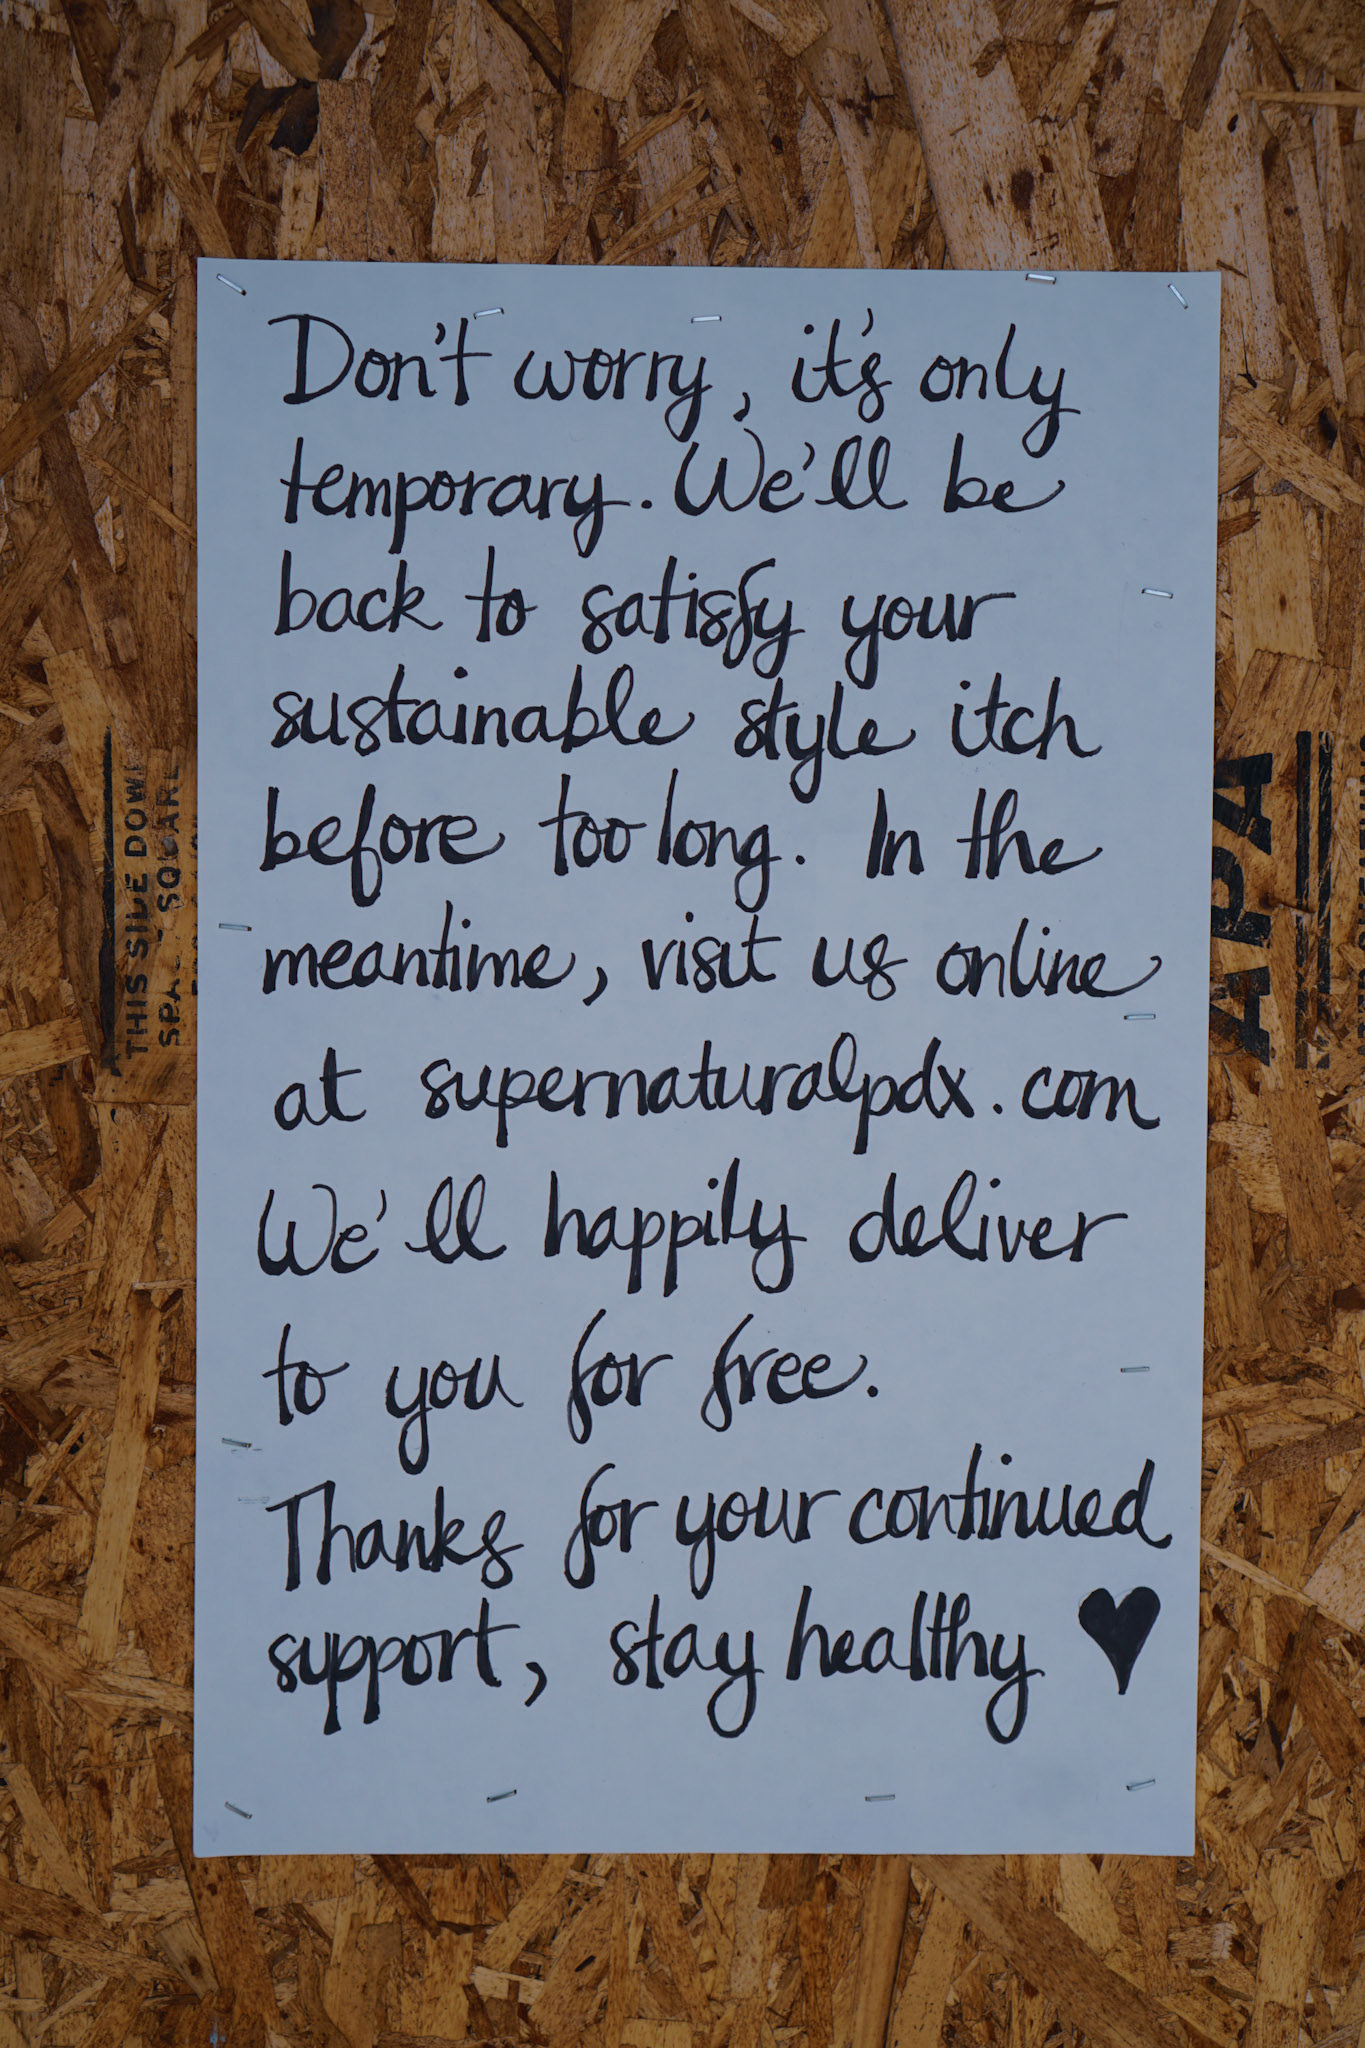 Don't worry, it's only
temporary. We'll be
back to satisfy your
sustainable style itch
before too long. In the
meantime, visit us online
at supernaturalpdx.com
We'll happily deliver
to you for free.
Thanks for your continued
support, stay healthy ♥
THIS SIDE DOWN
APA